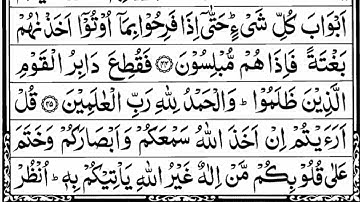 اَبْوَابَ كُلِّ شَیْءٍ ؕ حَتّٰۤی اِذَا فَرِحُوْا بِمَاۤ اُوْتُوْۤا اَخَذْنٰهُمْ
بَغْتَةً فَاِذَا هُمْ مُّبْلِسُوْنَ ﴿۴۴﴾ فَقُطِعَ دَابِرُ الْقَوْمِ
الَّذِیْنَ ظَلَمُوْا ؕ وَالْحَمْدُ لِلّٰهِ رَبِّ الْعٰلَمِیْنَ ﴿۴۵﴾ قُلْ
اَرَءَیْتُمْ اِنْ اَخَذَ اللّٰهُ سَمْعَكُمْ وَ اَبْصَارَكُمْ وَخَتَمَ
عَلٰی قُلُوْبِكُمْ مَّنْ اِلٰهٌ غَیْرُ اللّٰهِ یَاْتِیْكُمْ بِهٖ ؕ اُنْظُرْ